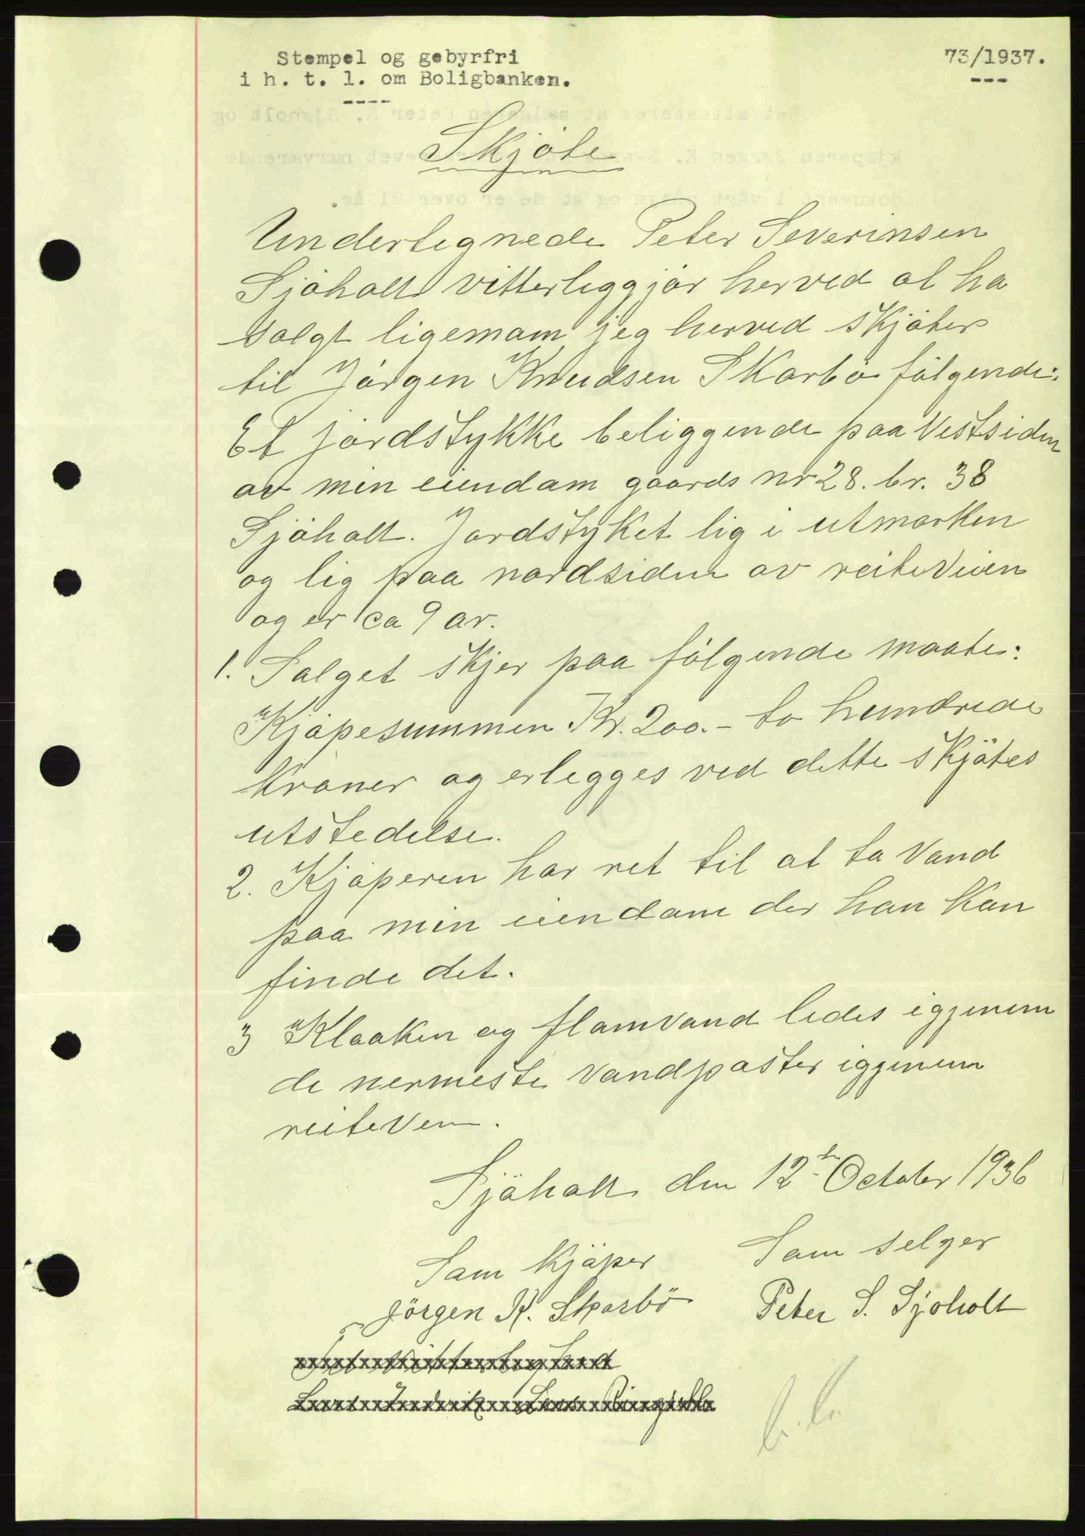 Stempel og gebyrfri
i h. t. l. om Boligbanken.
----
73/1937.
---
Skjöte
Undertegnede Peter Severinsen
Sjöholt vitterliggjör herved at ha
solgt ligemam jeg herved skjöter
til Jörgen Knudsen Skorbö fölgende:
Et jordstykke beliggende paa Vestsiden
av min eiendom gaards nr 28. br. 38
Sjöholt. Jordstyket lig i utmarken
og lig paa nordsiden av reiteveien
og er ca 9 ar.
1. Salget skjer paa fölgende maate:
Kjöpesummen Kr. 200.- to hundrede
kroner og erlegges ved dette skjötes
utstedelse.
2. Kjöperen har ret til at ta Vand
paa min eiendom der han kan
finde det.
3 Kloaken og flomvand ledes igjenem
de nermeste Vandposter igjenem
reiteven.
Sjöholt den 12te October 1936
Som kjöper
Som selger
Jörgen K. Skorbö
Peter S. Sjöholt